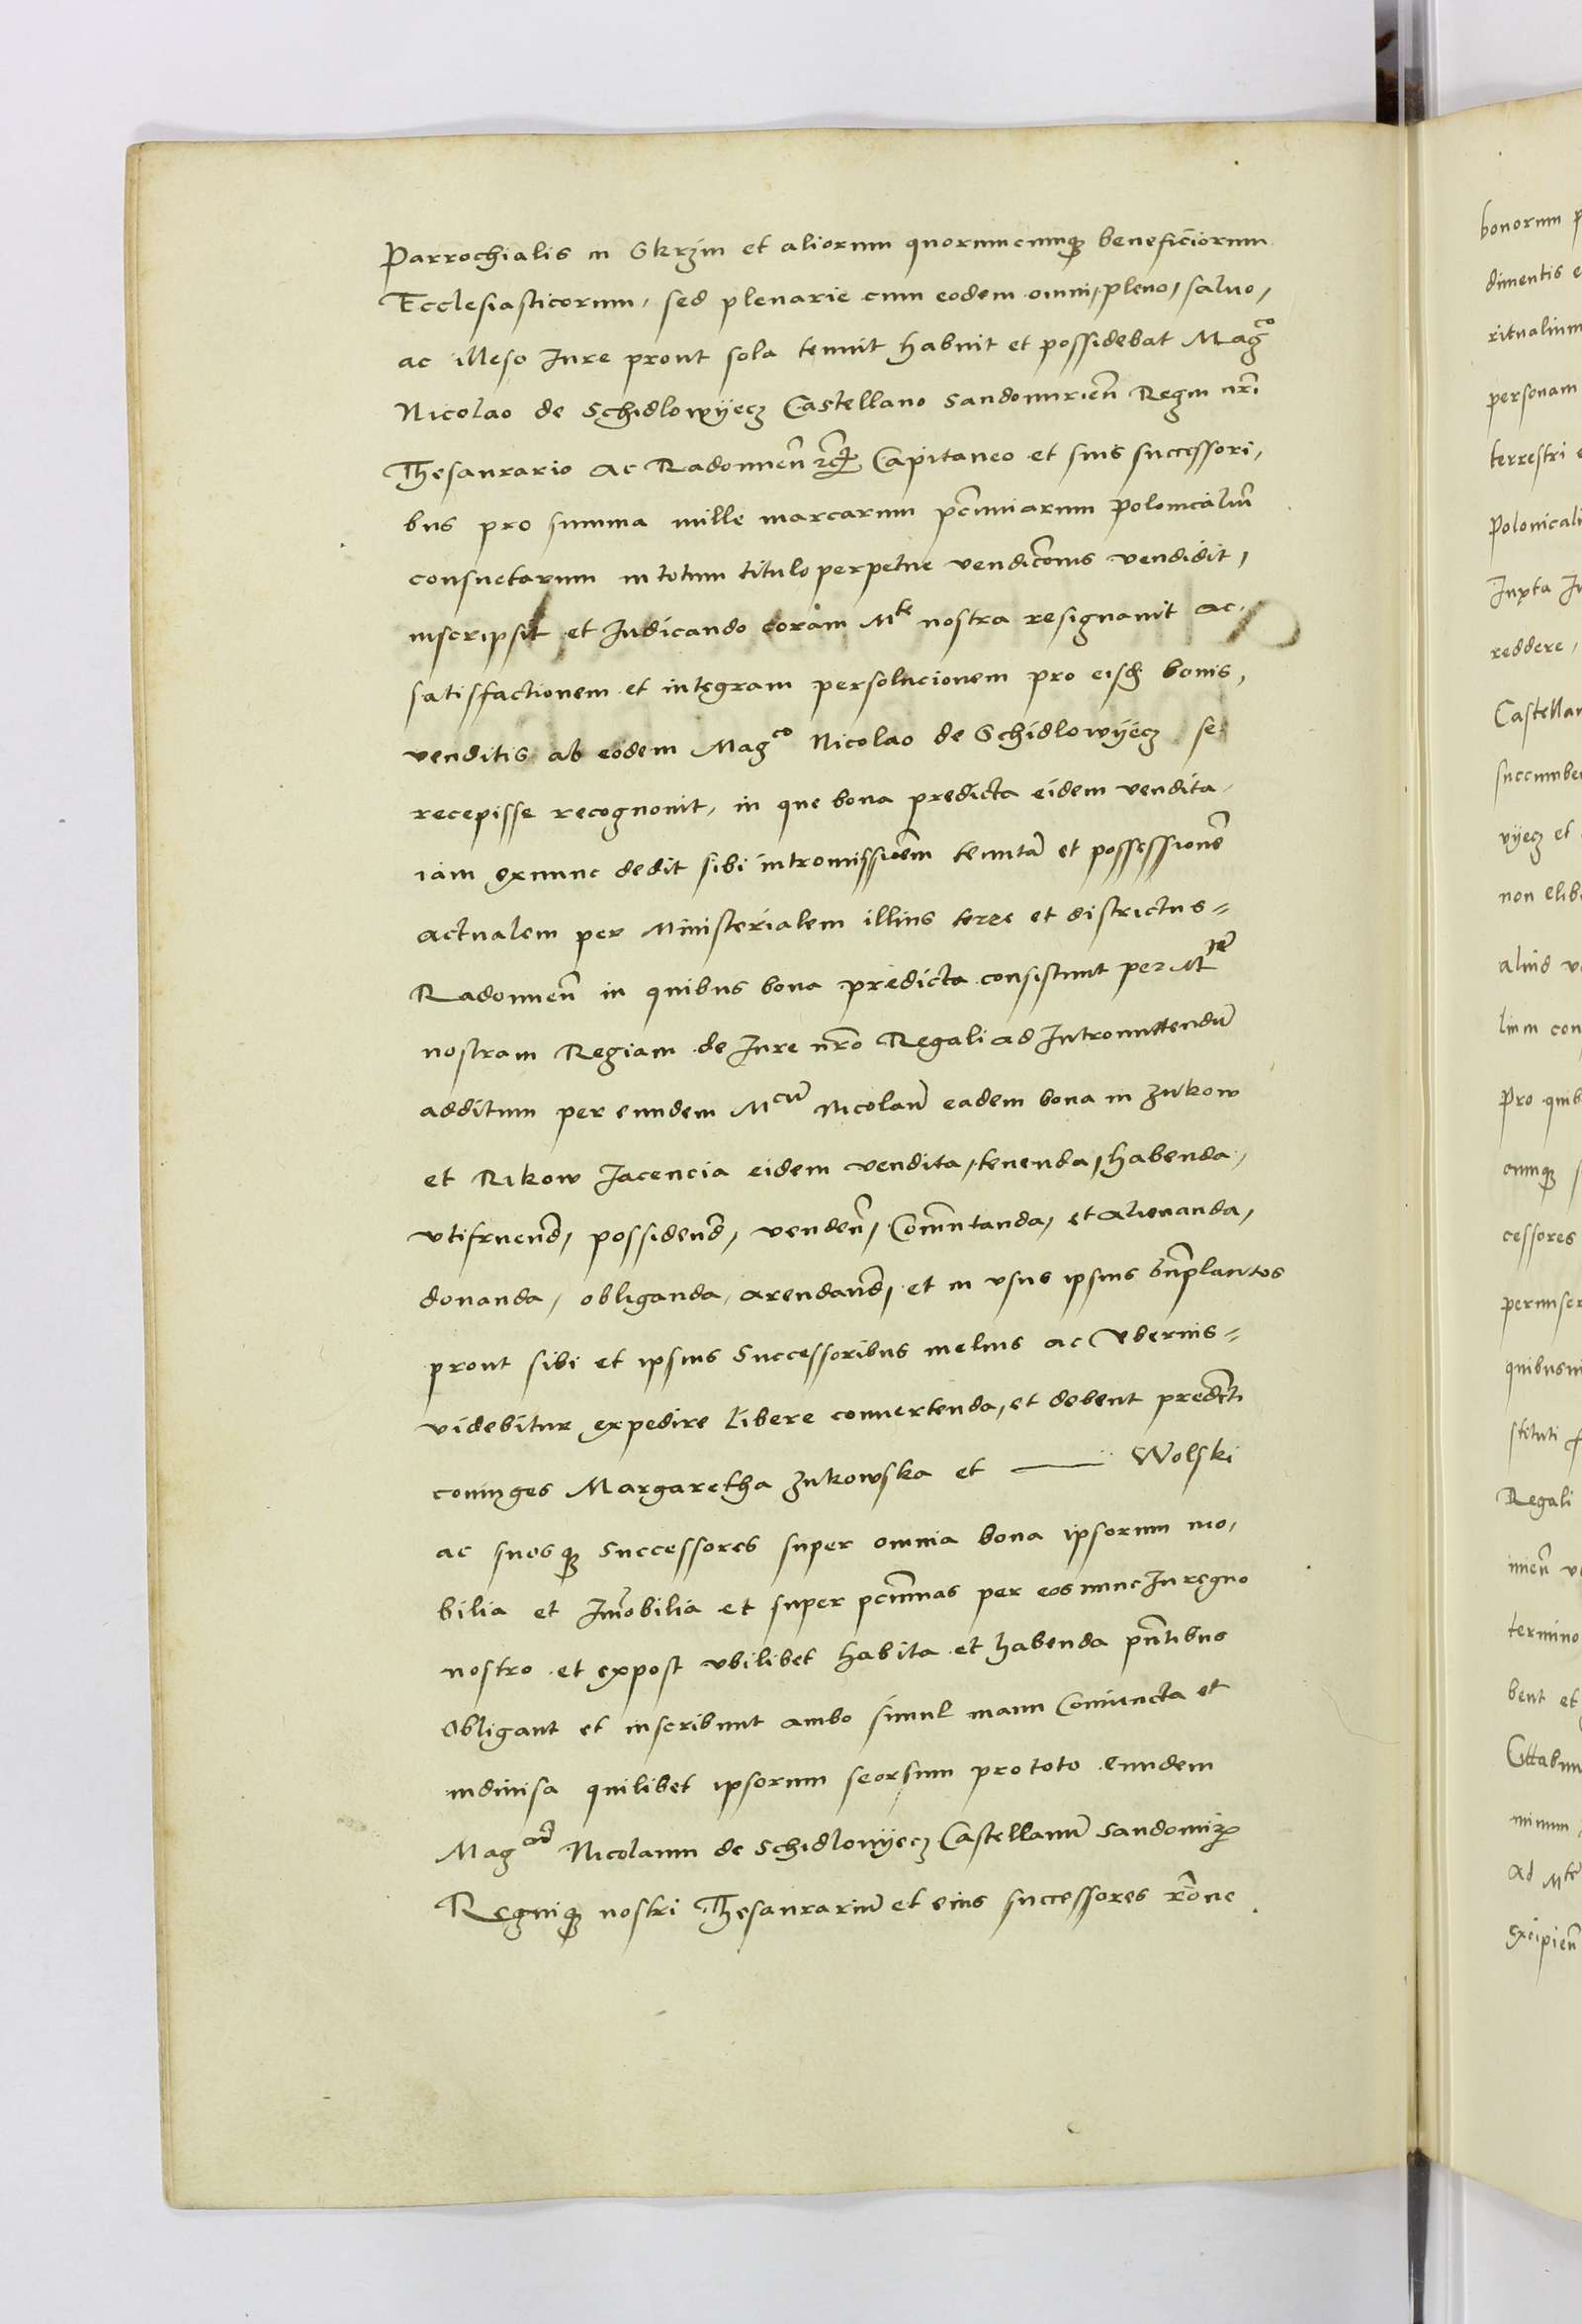 Parrochialis in Skrzin et aliorum quorumcumqꝫ beneficiorum
Ecclesiasticorum, sed plenarie cum eodem omni, pleno, saluo,
ac illeso Iure prout sola tenuit habuit et possidebat Mag͠co
Nicolao de Schidlowÿecz Castellano Sandomirien̄ Regni nr̄i
Thesaurario ac Radomien̄ Capitaneo et suis successori,
bus pro summa mille marcarum pc̄uniarum polonicaliū
consuetarum in totum titulo perpetue vendic̄onis vendidit,
inscripsit et Iudicando coram Mte nostra resignauit ac,
satisfactionem et integram persolucionem pro eisd̄ bonis,
venditis ab eodem Magco Nicolao de Schidlowÿecz se
recepisse recognouit, in que bona predicta eidem vendita,
iam exnunc dedit sibi intromissioēm tenutā et possessionē
actualem per Ministerialem illius terre et districtus=
Radomien̄ in quibus bona predicta consistunt per Mtē
nostram Regiam de Iure nr̄o Regali ad Intromittendū
additum per eundem Mcū Nicolaū eadem bona in Zukow
et Rikow Iacencia eidem vendita, tenenda, habenda,
vtifruend̄, possidend̄, venden̄, Com̄utanda, et alienanda,
donanda, obliganda, arendand̄, et in vsus ipsius bn̄placitos
prout sibi et ipsius Successoribus melius ac Vberius=
videbitur expedire libere conuertenda, et debent predicti
coniuges Margaretha Zukowska et —— Wolski
ac suosqꝫ Successores super omnia bona ipsorum mo,
bilia et Im̄obilia et super pc̄unias per eos nunc In regno
nostro et expost vbilibet habita et habenda pn̄tibus
Obligant et inscribunt ambo simul manu Coniuncta et
indiuisa quilibet ipsorum seorsum pro toto Eundem
Mag Nicolaum de Schidlowÿecz Castellanū Sandomir̄
Regniqꝫ nostri Thesaurariū et eius successores rōne
bonorum
dimentis
ritualium
personam
terrestri
Polonicali
Iuxta
reddere,
Castellan
succumbe
vÿecz et
non
aliud
lium con
Pro quib
cumqꝫ
cessores
stituti
Regali
mien̄
termino
bent et
minum
ad Mtē
Excipien̄